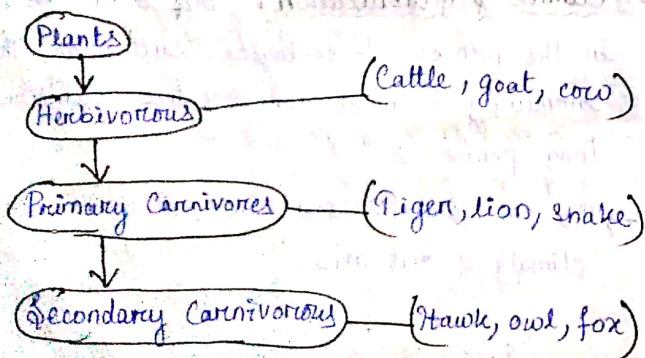 Plants
Herbivorous (Cattle, goat, cow)
Primary Carnivores (Tiger, lion, snake)
Secondary Carnivorous (Hawk, owl, fox)